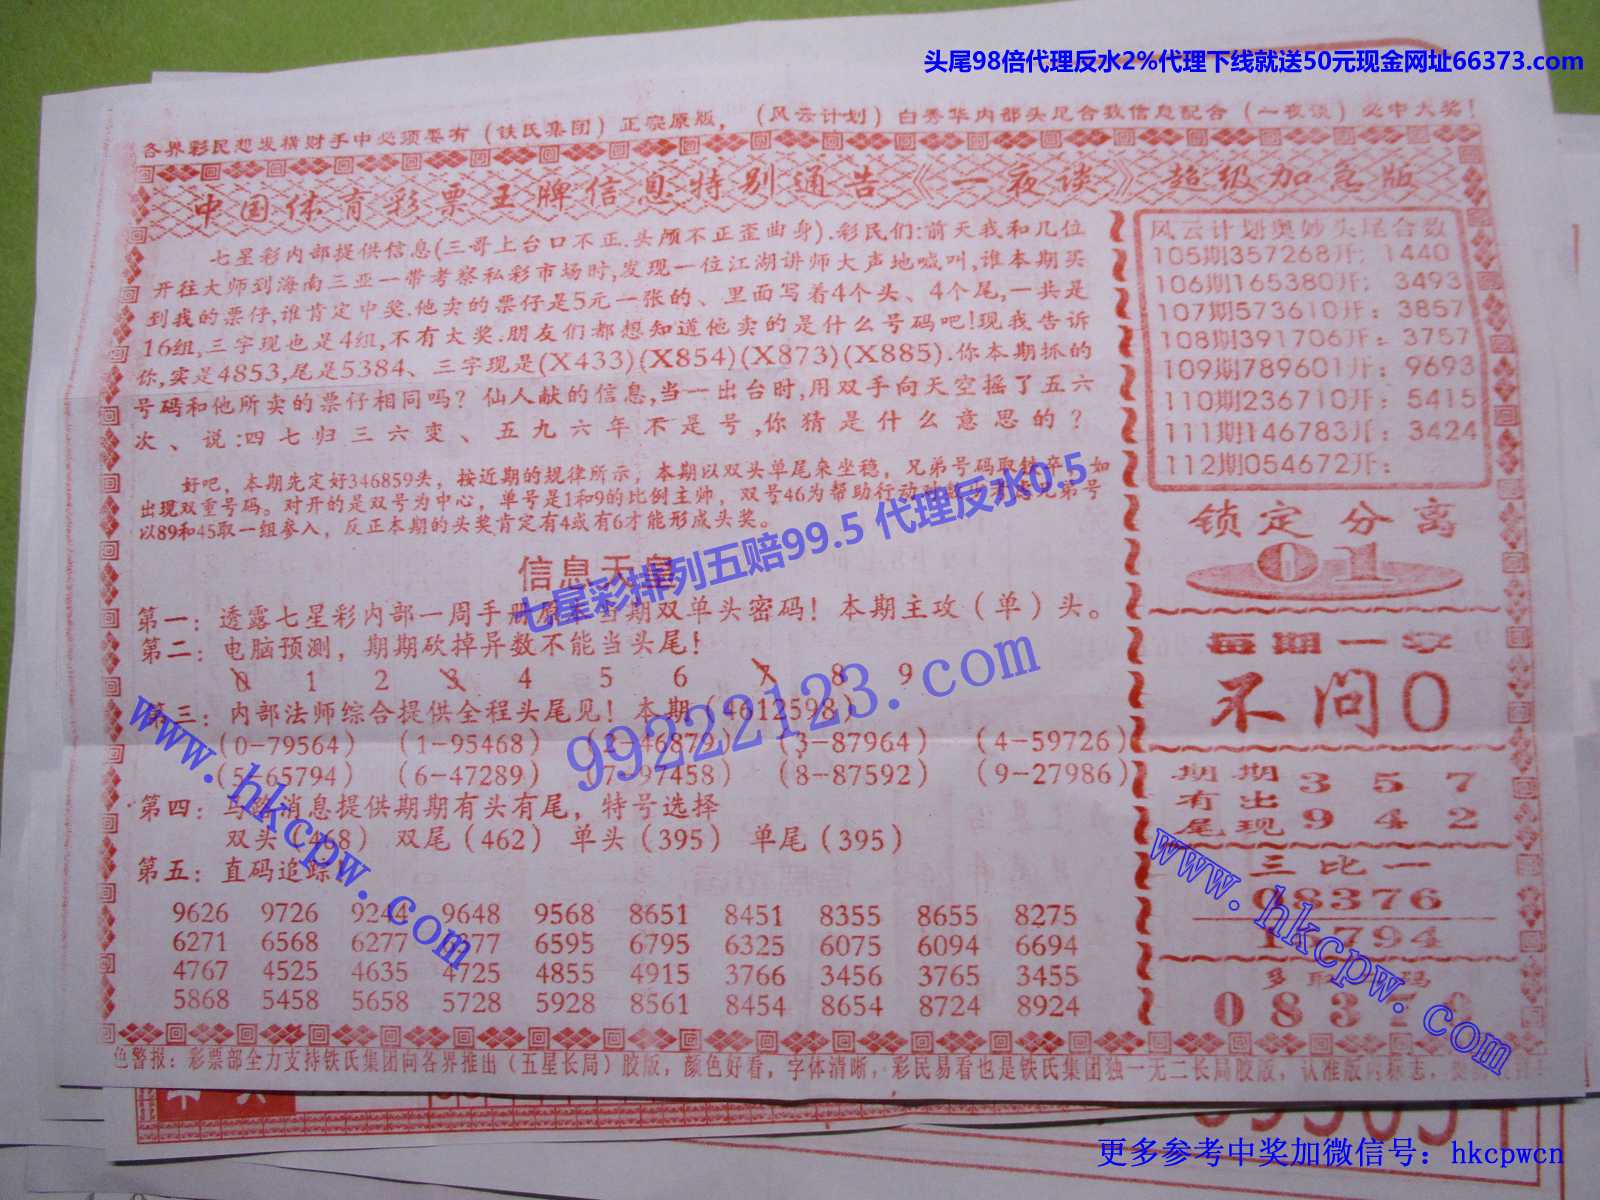 头尾98倍代理反水2%代理下线就送50元现金网址66373.com
各界彩民想发横财手中必须要有（铁氏集团）正宗原版，（风云计划）白秀华内部头尾合数信息配合（一夜谈）必中大奖！
中国体育彩票王牌信息特别通告《一夜谈》超级加急版
七星彩内部提供信息(三哥上台口不正.头颅不正歪曲身).彩民们:前天我和几位
开往大师到海南三亚一带考察私彩市场时,发现一位江湖讲师大声地喊叫,谁本期买
到我的票仔,谁肯定中奖.他卖的票仔是5元一张的、里面写着4个头、4个尾,一共是
16组,三字现也是4组,不有大奖.朋友们都想知道他卖的是什么号码吧!现我告诉
你,实是4853,尾是5384、三字现是(X433)(X854)(X873)(X885).你本期抓的
号码和他所卖的票仔相同吗？仙人献的信息,当一出台时,用双手向天空摇了五六
次、说:四七归三六变、五九六年不是号,你猜是什么意思的？
好吧，本期先定好346859头，按近期的规律所示，本期以双头单尾来坐稳，兄弟号码取 如
出现双重号码。对开的是双号为中心，单号是1和9的比例主师，双号46为帮助行动 弟号
以89和45取一组参入，反正本期的头奖肯定有4或有6才能形成头奖。
信息天皇
第一：透露七星彩内部一周手册原 当期双单头密码！本期主攻（单）头。
第二：电脑预测，期期砍掉异数不能当头尾！
0 1 2 3 4 5 6 7 8 9
第三：内部法师综合提供全程头尾见！本期（4612598）
（0-79564）（1-95468）（2-46879）（3-87964）（4-59726）
（5-65794）（6-47289）（7-97458）（8-87592）（9-27986）
第四：马 消息提供期期有头有尾，特号选择
双头（468） 双尾（462） 单头（395） 单尾（395）
第五：直码追踪
9626 9726 9244 9648 9568 8651 8451 8355 8655 8275
6271 6568 6277 6377 6595 6795 6325 6075 6094 6694
4767 4525 4635 4725 4855 4915 3766 3456 3765 3455
5868 5458 5658 5728 5928 8561 8454 8654 8724 8924
风云计划奥妙头尾合数
105期357268开：1440
106期165380开：3493
107期573610开：3857
108期391706开：3757
109期789601开：9693
110期236710开：5415
111期146783开：3424
112期054672开：
锁定分离
01
每期一字
不问0
期期 3 5 7
有出
尾现 9 4 2
三比一
98376
794
多 码
0 8 3 7
色警报：彩票部全力支持铁氏集团向各界推出（五星长局）胶版，颜色好看，字体清晰，彩民易看也是铁氏集团独一无二长局胶版，认准版内标志，
七星彩排列五赔99.5 代理反水0.5
99222123.com
www.hkcpw.com
www.hkcpw.com
更多参考中奖加微信号：hkcpwcn